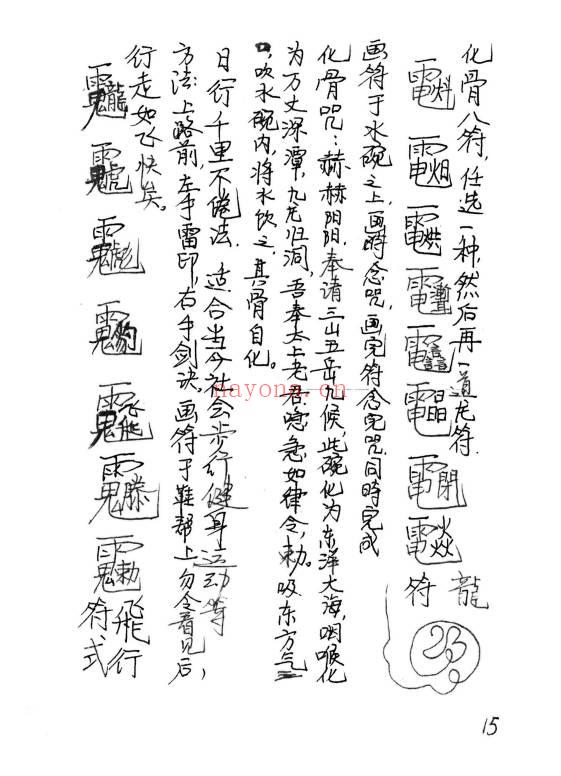 化骨八符,任选一种,然后再一道龙符.
龍
符
23
画符于水碗之上,画时念咒,画完符念完咒同时完成
化骨咒:赫赫阴阳,奉请三山五岳九候,此碗化为东洋大海,咽喉化
为万丈深潭,九龙归洞,吾奉太上老君急急如律令,勅。吸东方气三
口,吹水碗内,将水饮之,其骨自化。
日行千里不倦法.适合当今社会步行健身运动等
方法:上路前,左手雷印,右手剑诀,画符于鞋帮上勿令看见后,
行走如飞快矣。
飛行
符式
nayona.cn
15